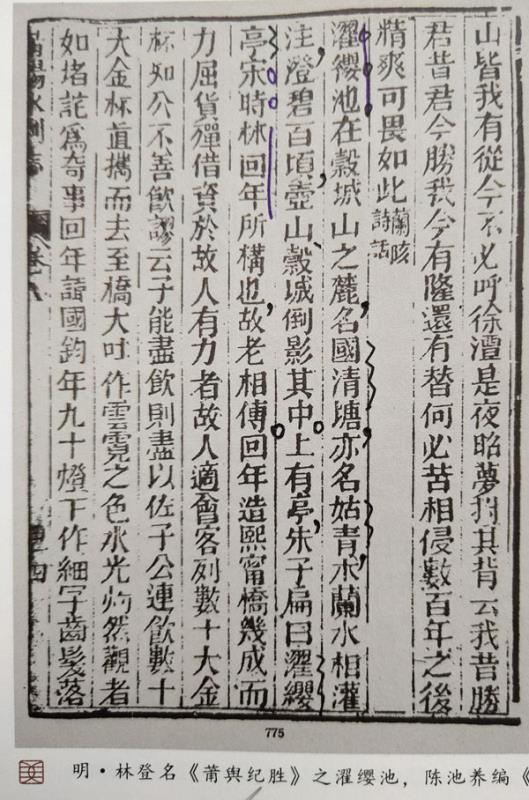 山皆我有從今不必呼徐潭是夜昭夢拊其背云我昔勝
君昔君今勝我今有隆還有替何必苦相侵數百年之後
精爽可畏如此蘭陔詩話
濯纓池在穀城山之麓名國清塘亦名姑青木蘭水相灌
注澄碧百頃壺山穀城倒影其中上有亭朱子扁曰濯纓
亭宋時林回年所構也故老相傳回年造熙甯橋幾成而
力屈貲殫借資於故人有力者故人適會客列數十大金
杯知公不善飲謬云子能盡飲則盡以佐子公連飲數十
大金杯直攜而去至橋大吐作雲霓之色水光灼然觀者
如堵詫為奇事回年請國鈞年九十燈下作細字齒髮落
775
明·林登名《莆舆纪胜》之濯缨池，陈池养编《